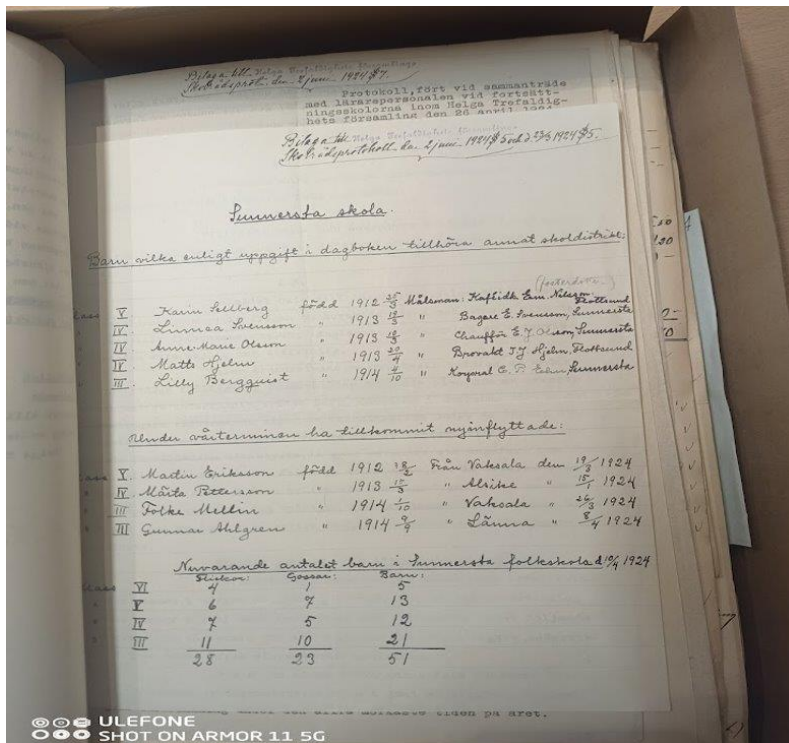 Bilaga till Helga Trefaldighets församlings
Skolrådsprot. den 2 juni 1924 § 7.
Protokoll, fört vid sammanträde
med lärarepersonalen vid fortsätt-
ningsskolorna inom Helga Trefaldig-
hets församling den 26 april 1924
Bilaga till Helga Trefaldighets församlings
Skolrådsprotokoll den 2 juni 1924 § 5 och d. 23/3 1924 § 5.
Sunnersta skola.
Barn, vilka enligt uppgift i dagboken tillhöra annat skoldistrikt:
Klass V. Karin Sellberg född 1912 Målsman: Kaféidk. Nilsson, Flottsund
" IV. Linnea Svensson " 1913 " Bagare E. Svensson, Sunnersta
" IV. Anne-Marie Olsson " 1913 " Chaufför E. J. Olsson, Sunnersta
" IV. Matts Hjelm " 1913 " Brovakt Hjelm, Flottsund
" III. Lilly Bergquist " 1914 4/10 " Korpral Sunnersta
Under vårterminen ha tillkommit nyinflyttade:
Klass V. Martin Eriksson född 1912 Från Vaksala den 19/3 1924
" IV. Märta Pettersson " 1913 " Alsike " 15/1 1924
" III Folke Mellin " 1914 1/10 " Vaksala " 26/3 1924
" III Gunnar Ahlgren " 1914 " Länna " 8/4 1924
Nuvarande antalet barn i Sunnersta folkskola d. 10/4 1924
Flickor: Gossar: Barn:
Klass VI 4 1 5
" V 6 7 13
" IV 7 5 12
" III 11 10 21
28 23 51
tiden på året.
ULEFONE
SHOT ON ARMOR 11 5G